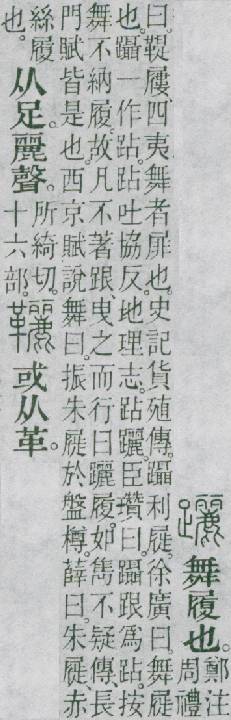 躧舞履也。鄭注周禮
曰。鞮屨、四夷舞者屝也。史記貨殖傳。躡利屣。徐廣曰。舞屣
也。躡一作跕。跕吐協反。地理志。跕躧。臣瓚曰。躡跟為跕。按
舞不納履。故凡不著跟、曳之而行曰躧履。如雋不疑傳、長
門賦皆是也。西京賦說舞曰。振朱屣於盤樽。薛曰。朱屣、赤
絲履也。从足。麗聲。所綺切。十六部。或从革。